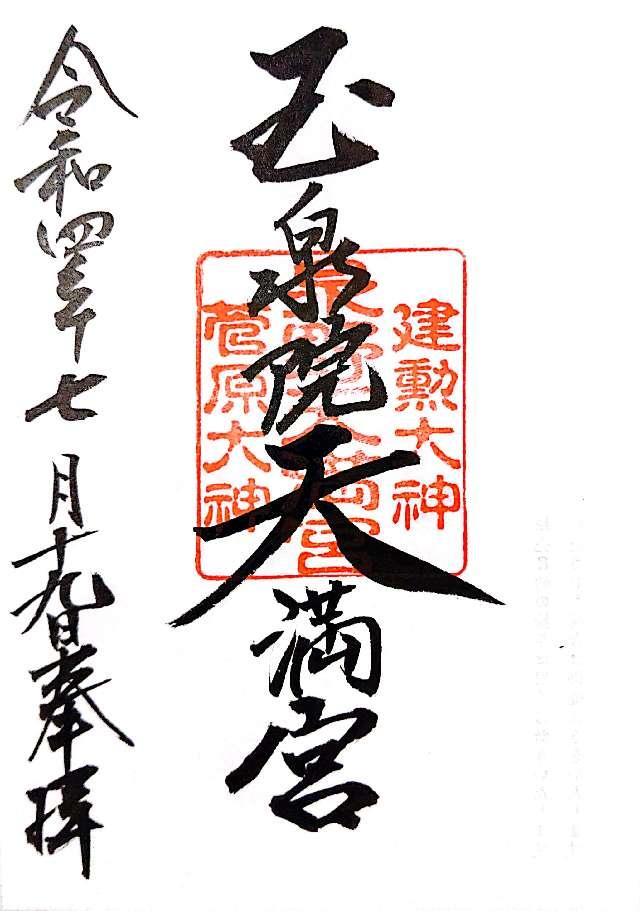 建勲大神
玉泉院天満宮
菅原大神
令和四年七月十九日奉拝